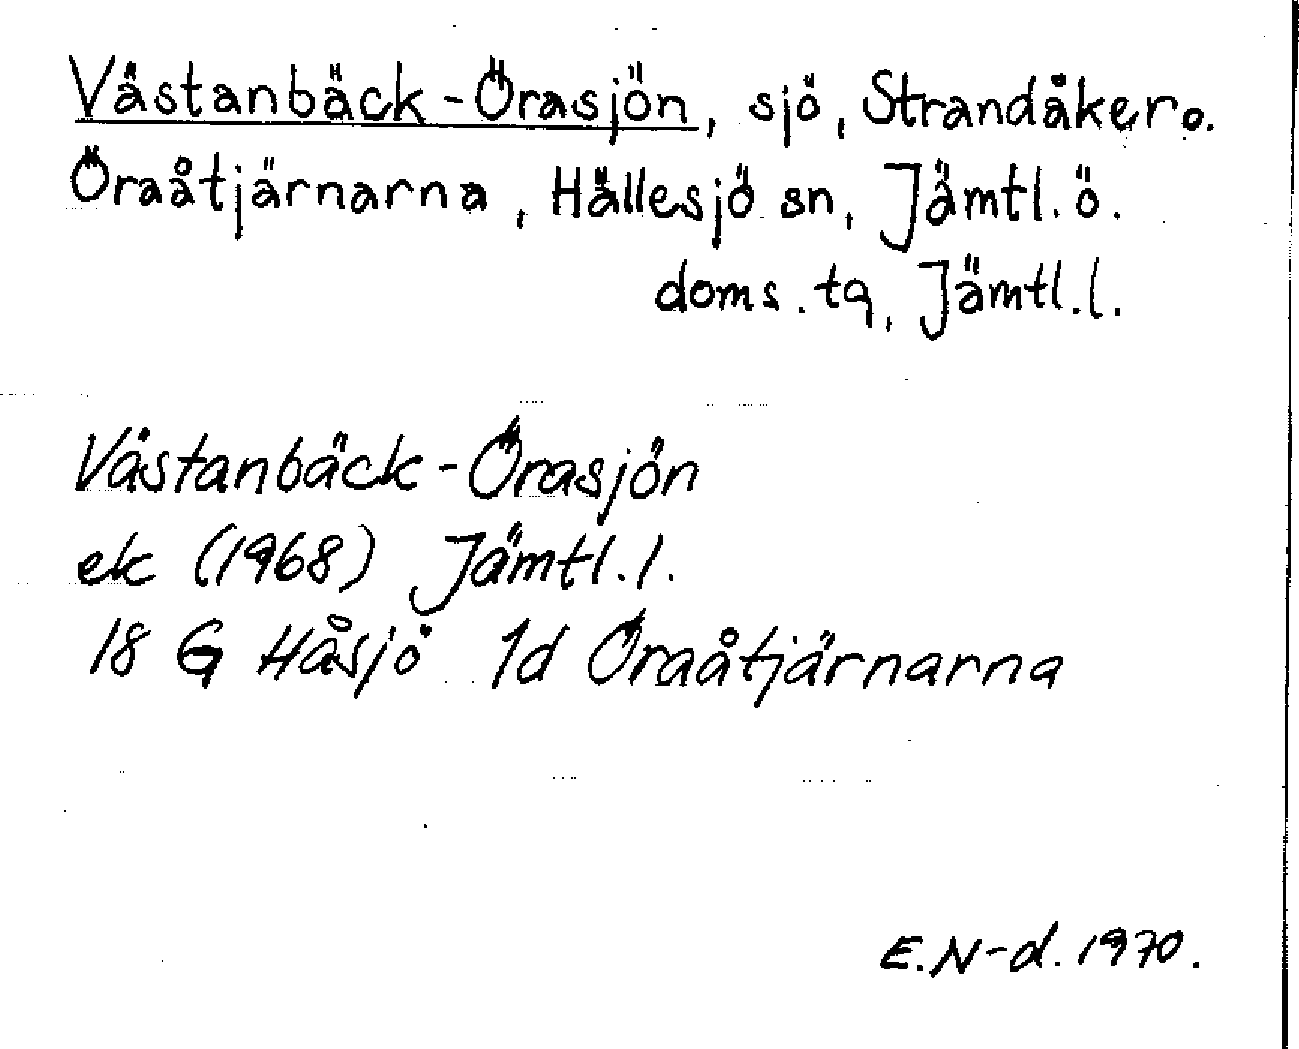 Västanbäck-Örasjön, sjö, Strandåker o.
Öraåtjärnarna, Hällesjö sn, Jämtl. ö.
doms. tq, Jämtl. l.
Västanbäck-Örasjön
ek (1968) Jämtl. l.
18 G Håsjö 1d Öraåtjärnarna
E. N-d. 1970.